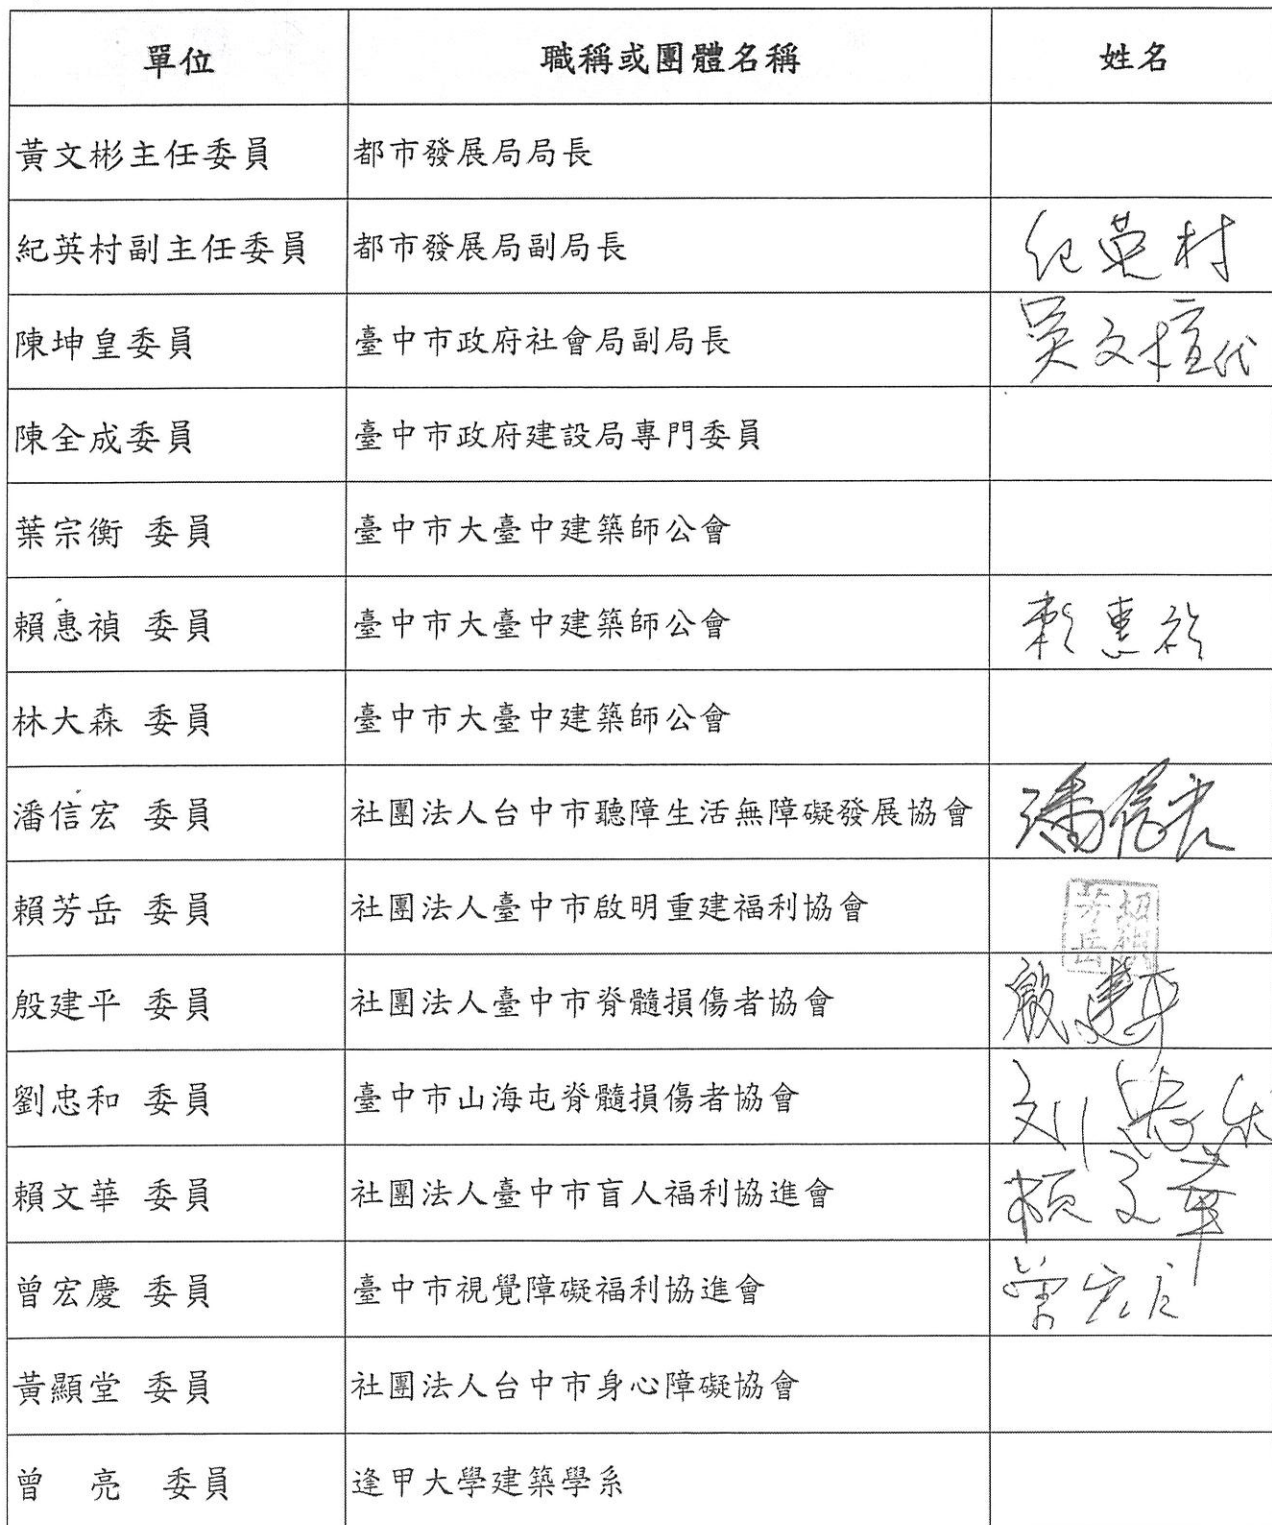 單位 職稱或團體名稱 姓名
黃文彬主任委員 都市發展局局長
紀英村副主任委員 都市發展局副局長 紀英村
陳坤皇委員 臺中市政府社會局副局長 吳文楦代
陳全成委員 臺中市政府建設局專門委員
葉宗衡 委員 臺中市大臺中建築師公會
賴惠禎 委員 臺中市大臺中建築師公會 賴惠禎
林大森 委員 臺中市大臺中建築師公會
潘信宏 委員 社團法人台中市聽障生活無障礙發展協會 潘信宏
賴芳岳 委員 社團法人臺中市啟明重建福利協會 芳岳
殷建平 委員 社團法人臺中市脊髓損傷者協會 殷建平
劉忠和 委員 臺中市山海屯脊髓損傷者協會 刘忠和
賴文華 委員 社團法人臺中市盲人福利協進會 賴文華
曾宏慶 委員 臺中市視覺障礙福利協進會
黃顯堂 委員 社團法人台中市身心障礙協會
曾 亮 委員 逢甲大學建築學系